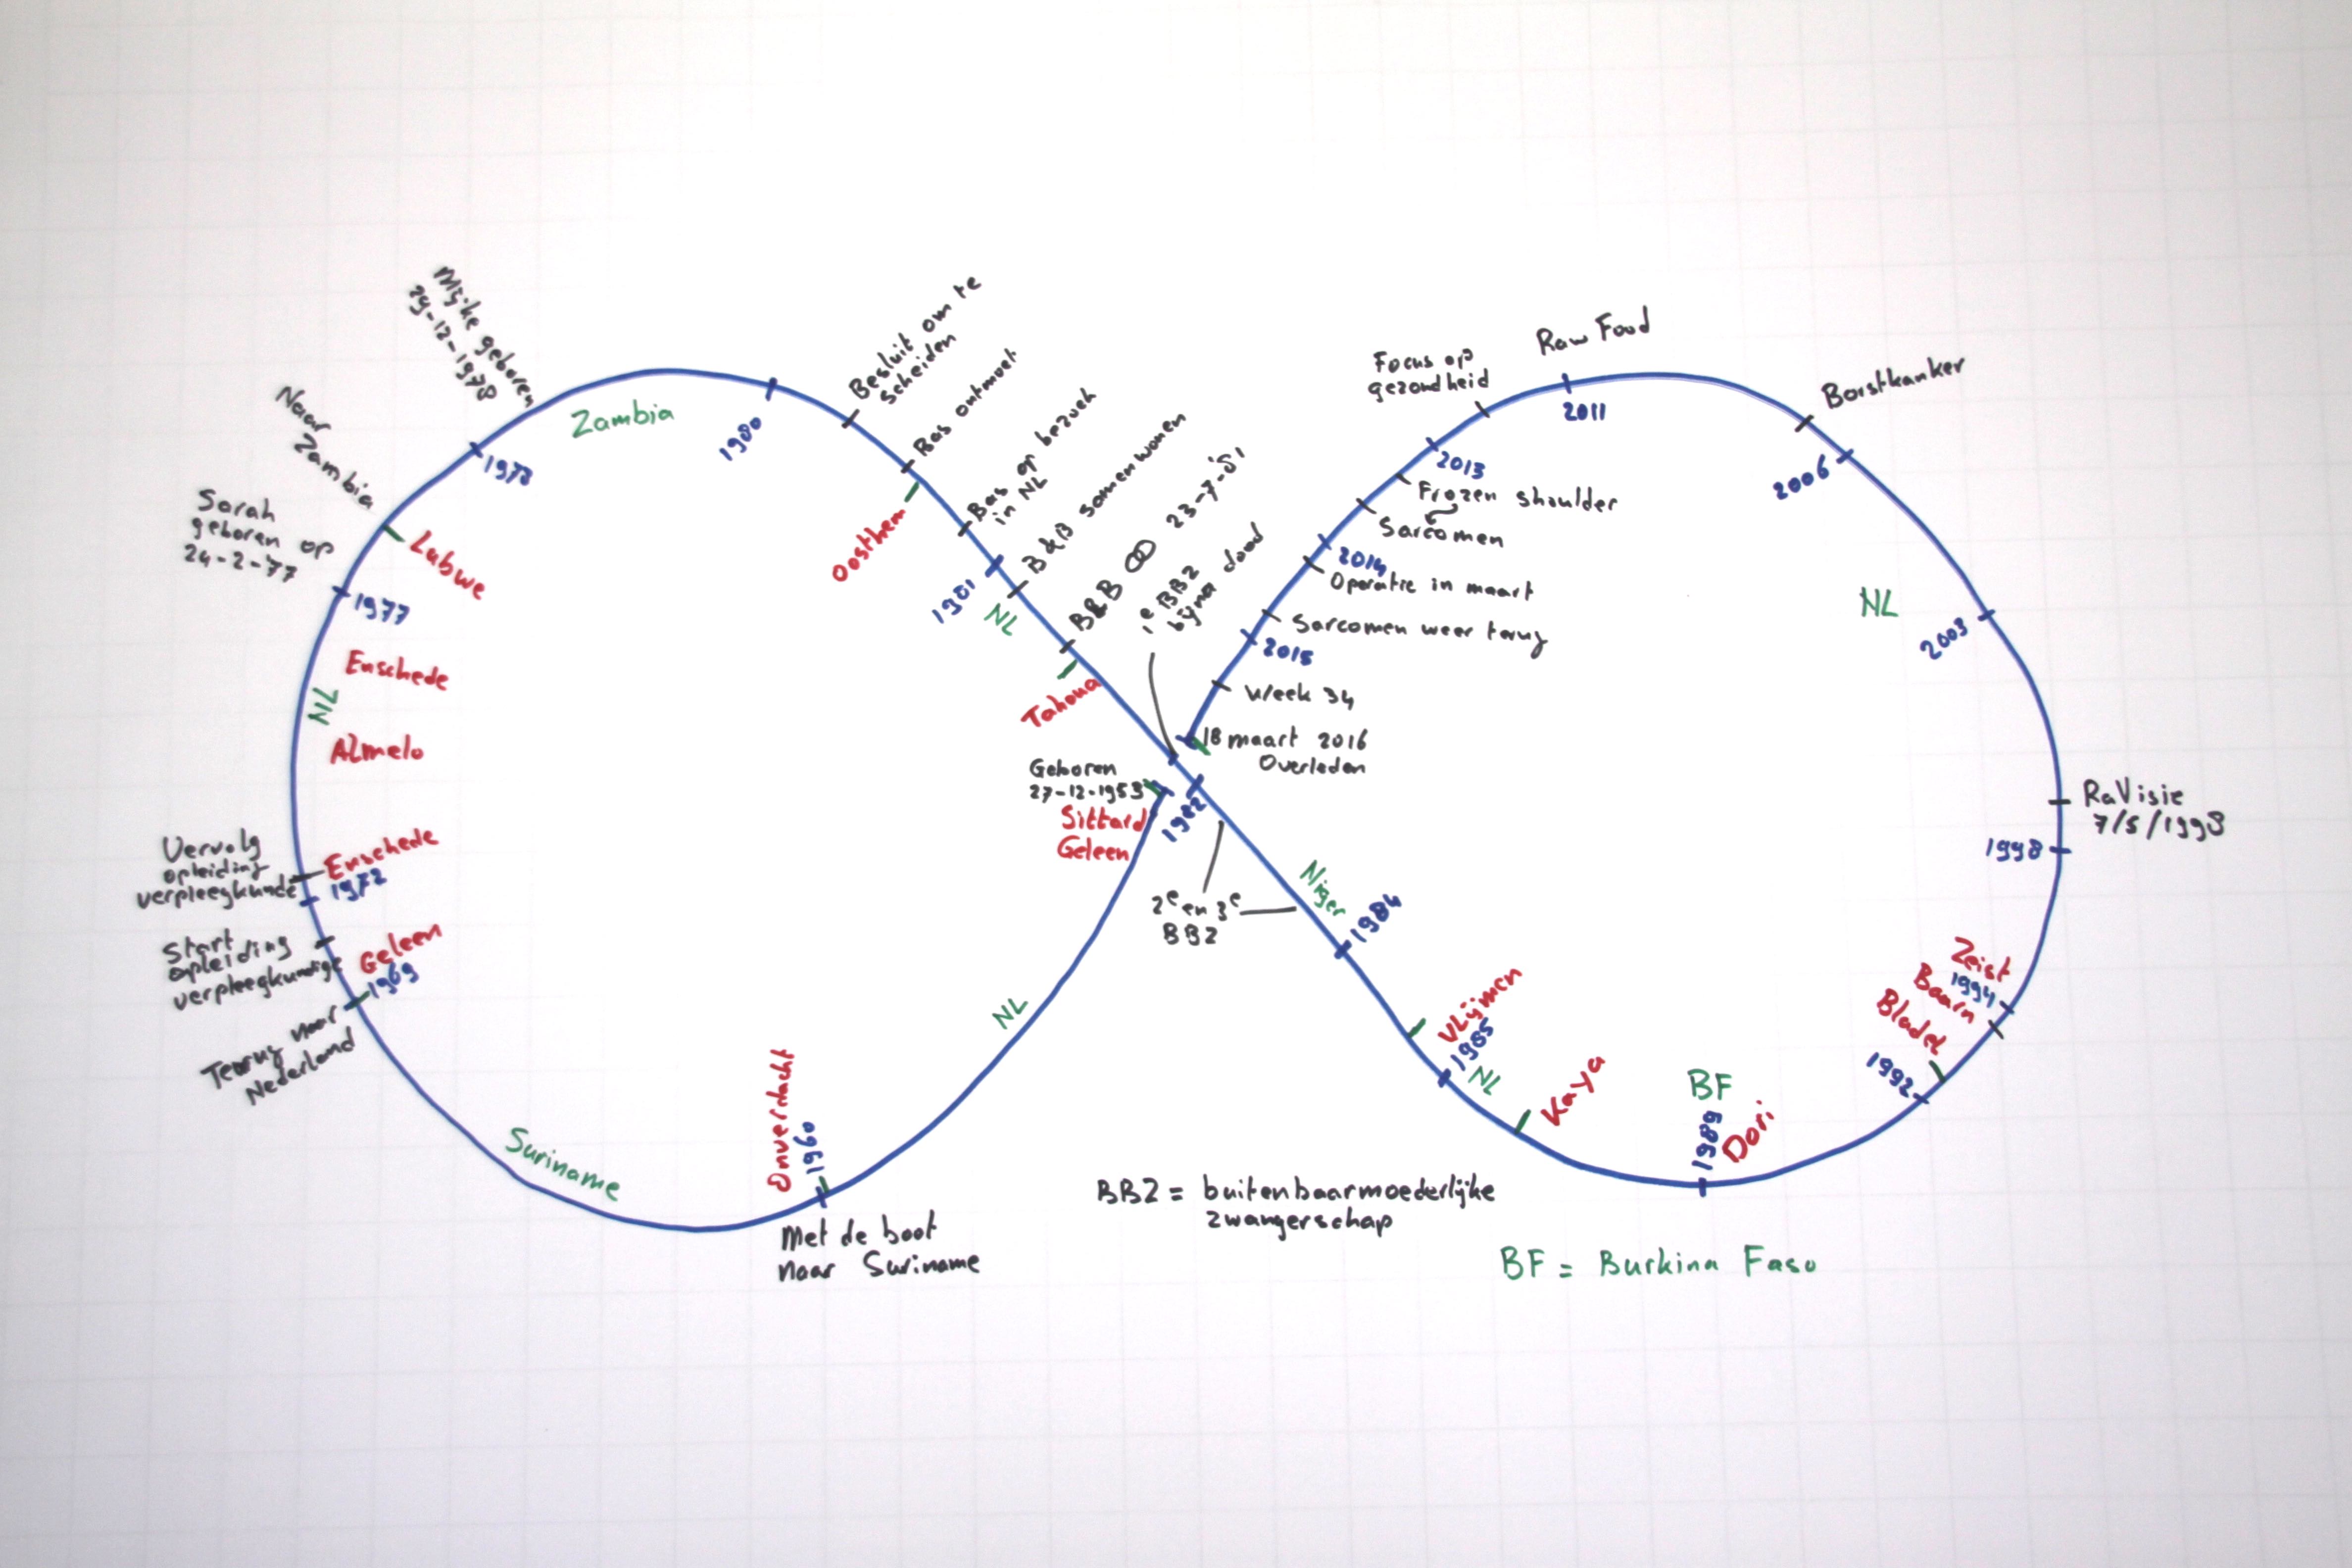 Geboren
27-12-1953
Sittard
Geleen
NL
Met de boot
naar Suriname
1960
Onverdacht
Suriname
Terug naar
Nederland
1969
Geleen
Start
opleiding
verpleegkundige
1972
Enschede
Vervolg
opleiding
verpleegkunde
Almelo
NL
Enschede
1977
Sarah
geboren op
24-2-77
Lubwe
Naar
Zambia
1978
Mijke geboren
29-12-1978
Zambia
1980
Besluit om te
scheiden
Bas ontmoet
Oosthem
Bas op bezoek
in NL
1981
B&B samenwonen
NL
B&B ꝏ 23-7-'81
Tahoua
1e BBZ
bijna dood
1982
2e en 3e
BBZ
Niger
1984
Vlijmen
1985
NL
Kaya
BF
1989
Dori
1992
Bladel
Baarn
1994
Zeist
1998
RaVisie
7/5/1998
2003
NL
2006
Borstkanker
Raw Food
2011
Focus op
gezondheid
2013
Frozen shoulder
Sarcomen
2014
Operatie in maart
Sarcomen weer terug
2015
Week 34
18 maart 2016
Overleden
BBZ = buitenbaarmoederlijke
zwangerschap
BF = Burkina Faso